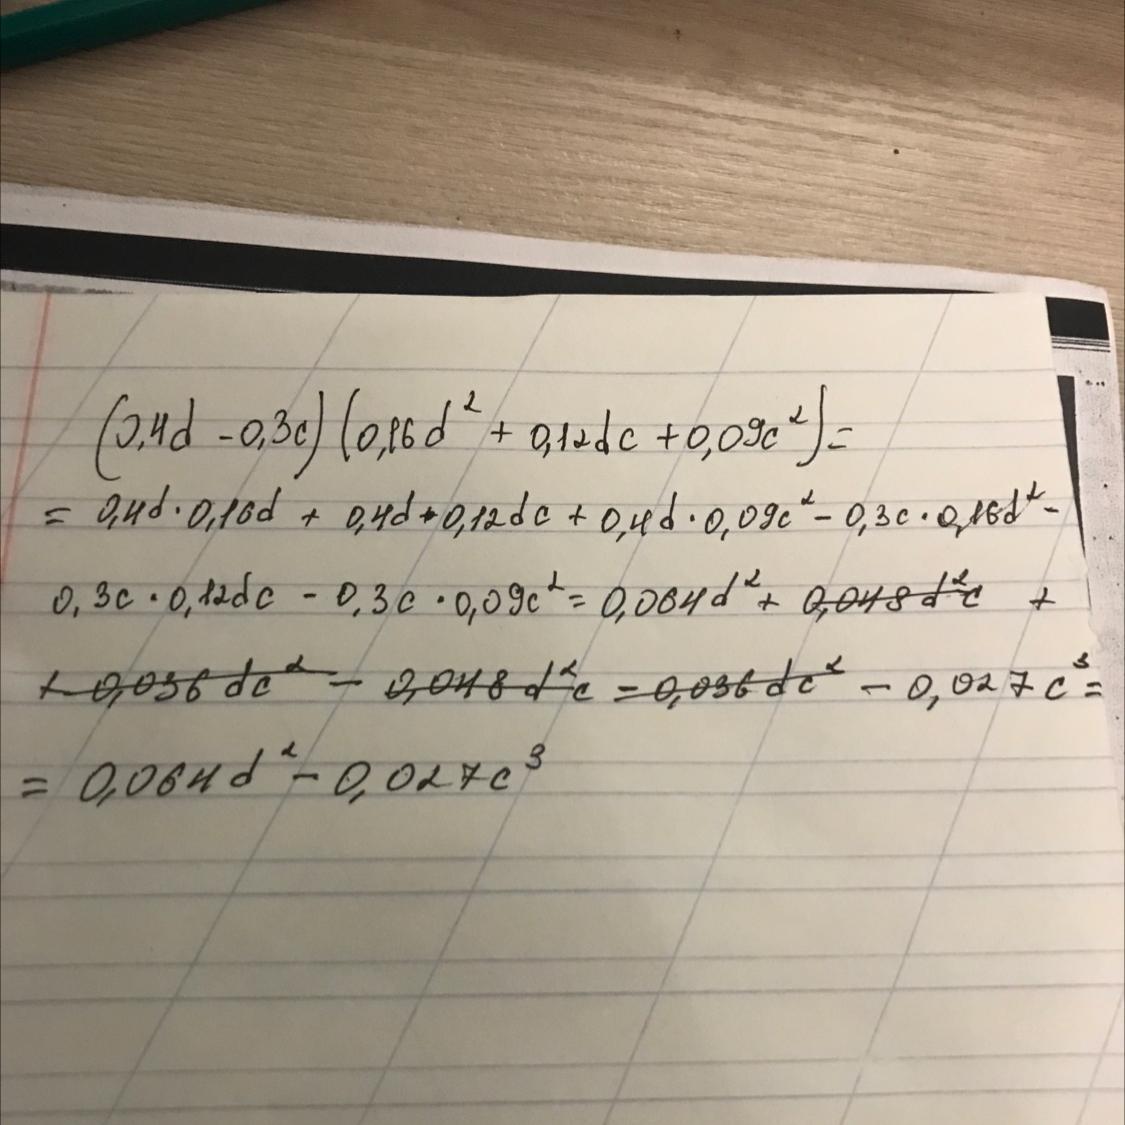 (0,4d - 0,3c)(0,16d² + 0,12dc + 0,09c²) =
= 0,4d · 0,16d + 0,4d · 0,12dc + 0,4d · 0,09c² - 0,3c · 0,16d² -
0,3c · 0,12dc - 0,3c · 0,09c² = 0,064d² + 0,048d²c +
+ 0,036dc² - 0,048d²c - 0,036dc² - 0,027c³ =
= 0,064d² - 0,027c³